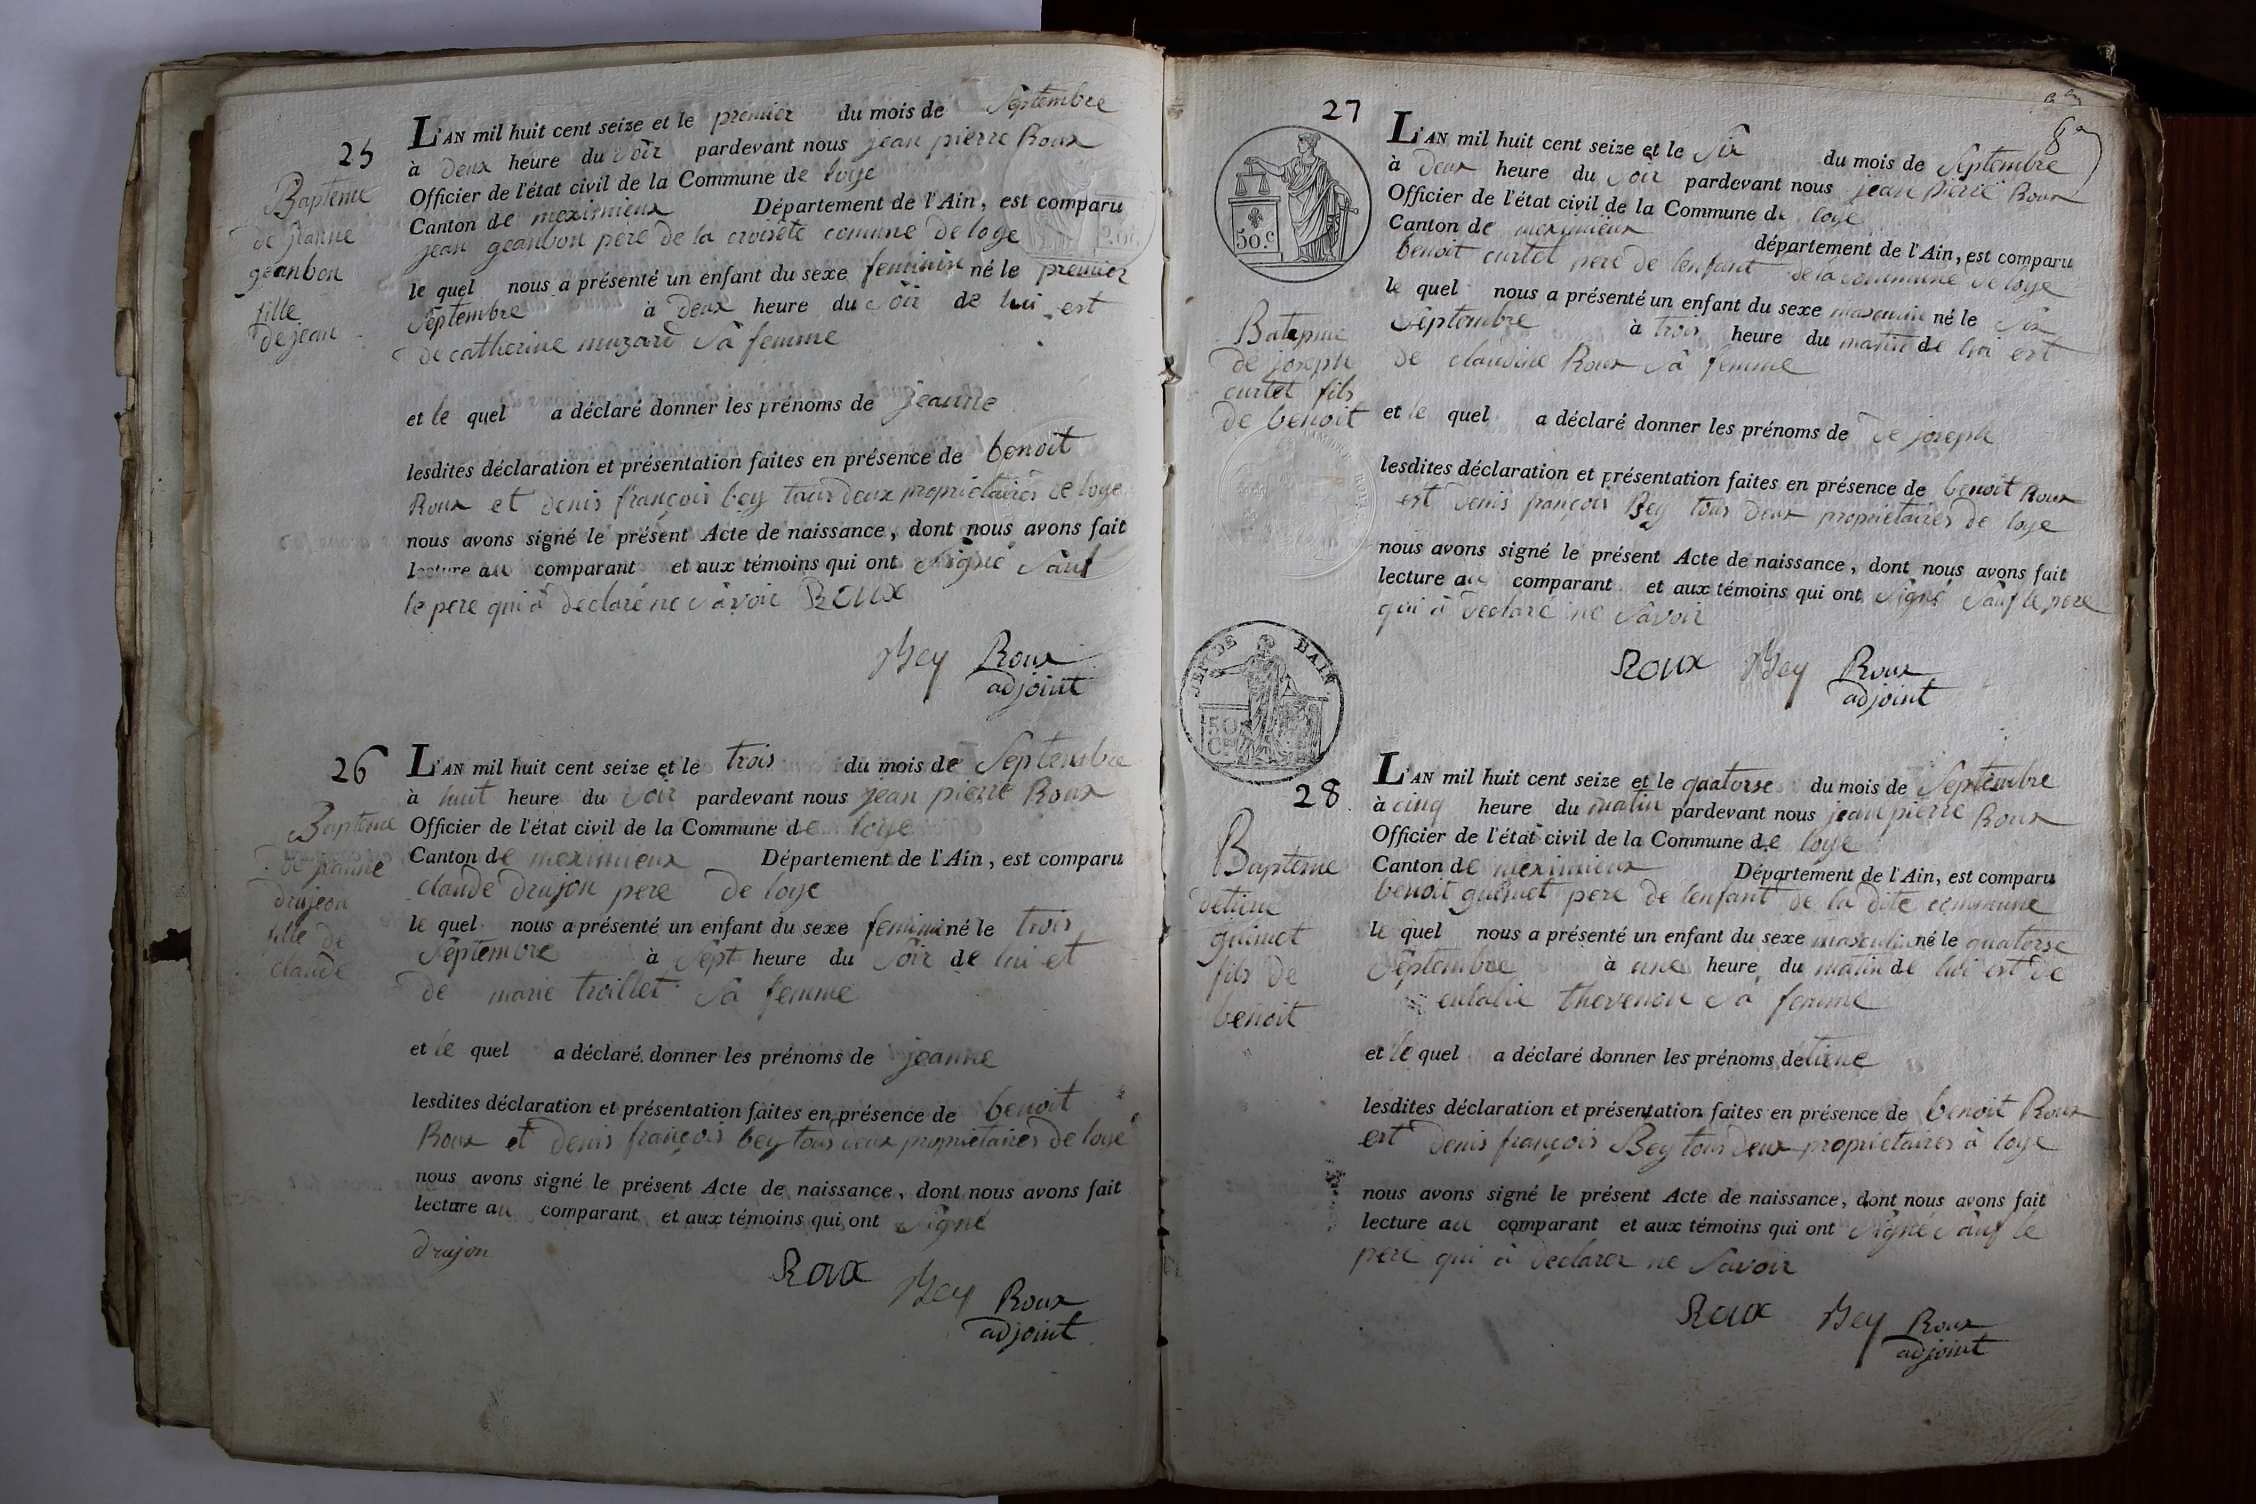 25
Bapteme
de jeanne
geanbon
fille
de jean
L'AN mil huit cent seize et le premier du mois de Septembre
à deux heure du soir pardevant nous jean pierre Roux
Officier de l'état civil de la Commune de loye
Canton de meximieux Département de l'Ain, est comparu
jean geanbon pere de la croisete comune de loye
le quel nous a présenté un enfant du sexe feminin né le premier
Septembre à deux heure du soir de lui est
de catherine muzard sà femme
et le quel a déclaré donner les prénoms de jeanne
lesdites déclaration et présentation faites en présence de benoit
Roux et denis françois bey tous deux proprietaires de loye
nous avons signé le présent Acte de naissance, dont nous avons fait
lecture au comparant et aux témoins qui ont signé sauf
le pere qui à declaré ne savoir Roux
Bey Roux
adjoint
26
Bapteme
de jeanne
drujeon
fille de
claude
L'AN mil huit cent seize et le trois du mois de Septembre
à huit heure du soir pardevant nous jean pierre Roux
Officier de l'état civil de la Commune de loye
Canton de meximieux Département de l'Ain, est comparu
claude drujon pere de loye
le quel nous a présenté un enfant du sexe feminin né le trois
Septembre à sept heure du soir de lui et
de marie troillet sà femme
et le quel a déclaré donner les prénoms de jeanne
lesdites déclaration et présentation faites en présence de benoit
Roux et denis françois bey tous deux proprietaires de loye
nous avons signé le présent Acte de naissance, dont nous avons fait
lecture au comparant et aux témoins qui ont signé
drujon
Roux Bey Roux
adjoint
27
50.c
Batepme
de joseph
curtet fils
de benoit
L'AN mil huit cent seize et le six du mois de Septembre
à deux heure du soir pardevant nous jean pierre Roux
Officier de l'état civil de la Commune de loye
Canton de meximieux département de l'Ain, est comparu
benoit curtet pere de lenfant de la commune de loye
le quel nous a présenté un enfant du sexe masculin né le six
Septembre à trois heure du matin de lui est
de claudine Roux sà femme
et le quel a déclaré donner les prénoms de de joseph
lesdites déclaration et présentation faites en présence de benoit Roux
est denis françois Bey tous deux proprietaires de loye
nous avons signé le présent Acte de naissance, dont nous avons fait
lecture au comparant et aux témoins qui ont signé sauf le pere
qui à declaré ne savoir
Roux Bey Roux
adjoint
50
28
Bapteme
detiene
guimet
fils de
benoit
L'AN mil huit cent seize et le quatorse du mois de Septembre
à cinq heure du matin pardevant nous jean pierre Roux
Officier de l'état civil de la Commune de loye
Canton de meximieux Département de l'Ain, est comparu
benoit guimet pere de lenfant de la dite commune
le quel nous a présenté un enfant du sexe masculin né le quatorse
Septembre à une heure du matin de lui est de
eulalie thevenon sà femme
et le quel a déclaré donner les prénoms detiene
lesdites déclaration et présentation faites en présence de benoit Roux
est denis françois Bey tous deux proprietaires à loye
nous avons signé le présent Acte de naissance, dont nous avons fait
lecture au comparant et aux témoins qui ont signé sauf le
pere qui à declarer ne savoir
Roux Bey Roux
adjoint